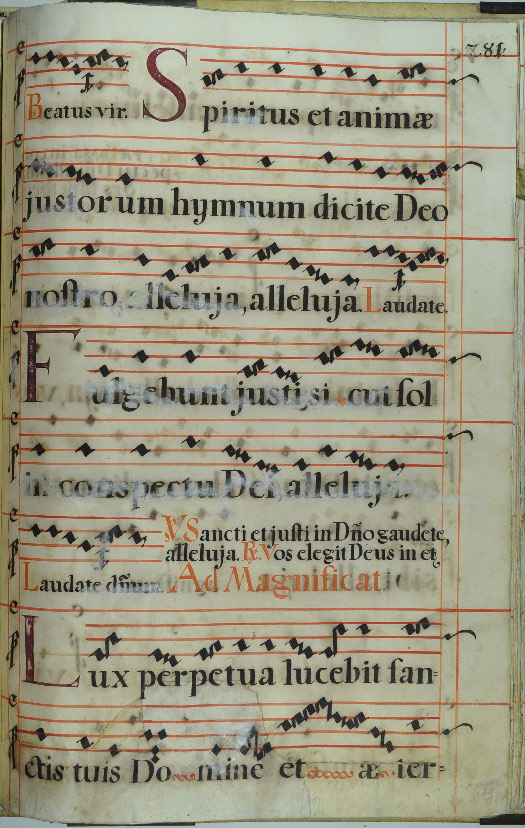 281
Beatus vir. Spiritus et animæ
justorum hymnum dicite Deo
nostro, alleluja, alleluja. Laudate.
Fulgebunt justi, sicut sol
in conspectu Dei, alleluja.
℣ Sancti et justi in Dño gaudete,
alleluja. ℟. Vos elegit Deus in et
Laudate dñum Ad Magnificat
Lux perpetua lucebit san=
ctis tuis Domine et æter=